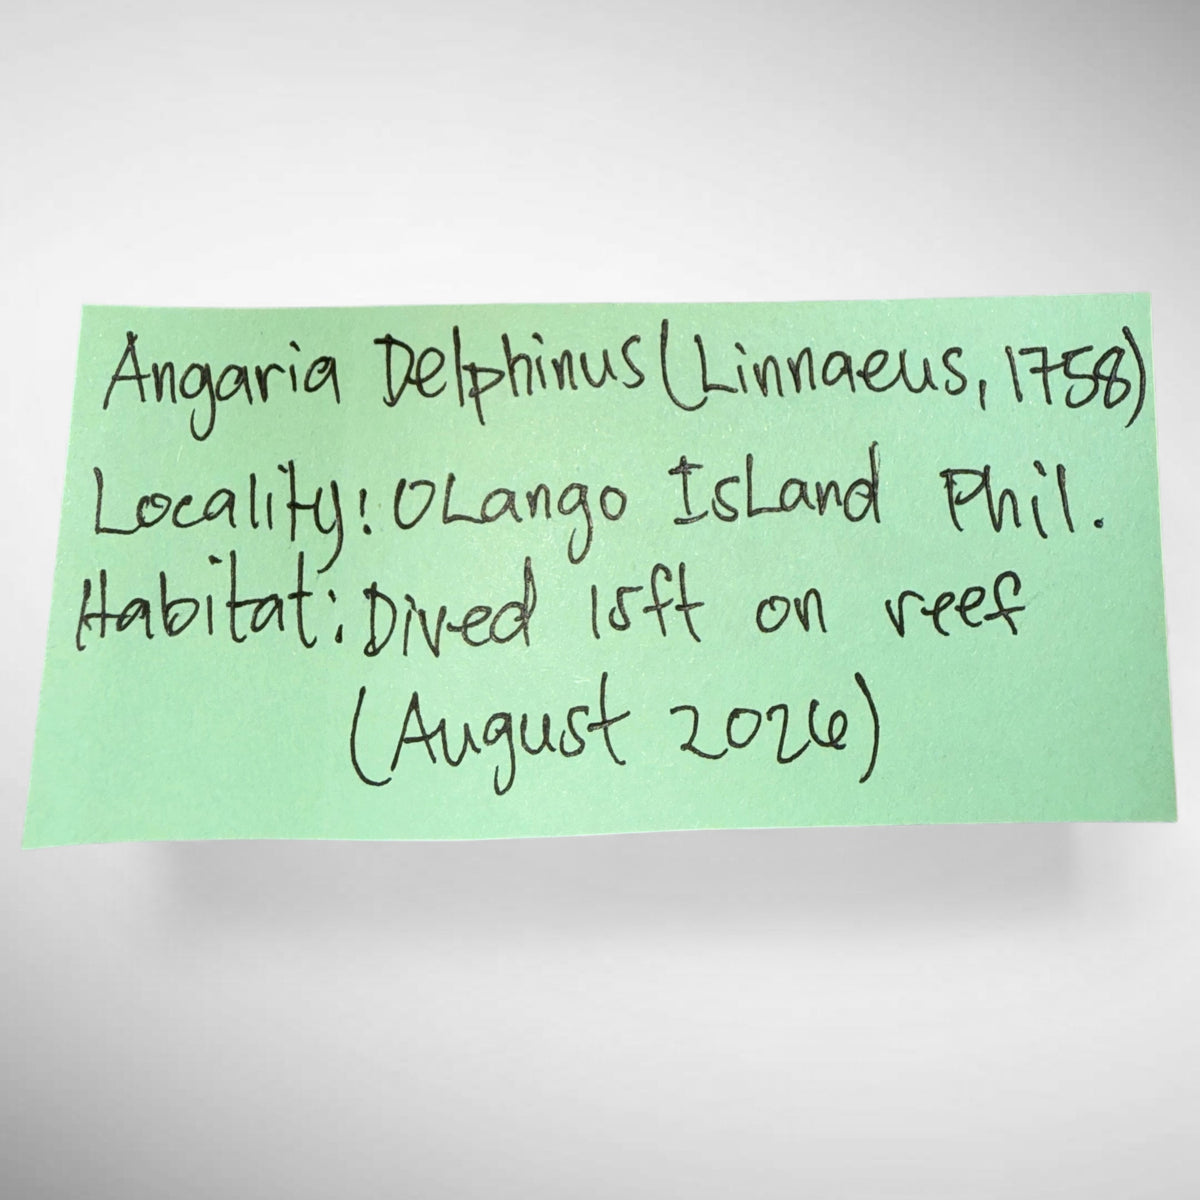 Angaria Delphinus (Linnaeus, 1758)
Locality: OLango IsLand Phil.
Habitat: Dived 15ft on reef
(August 2026)